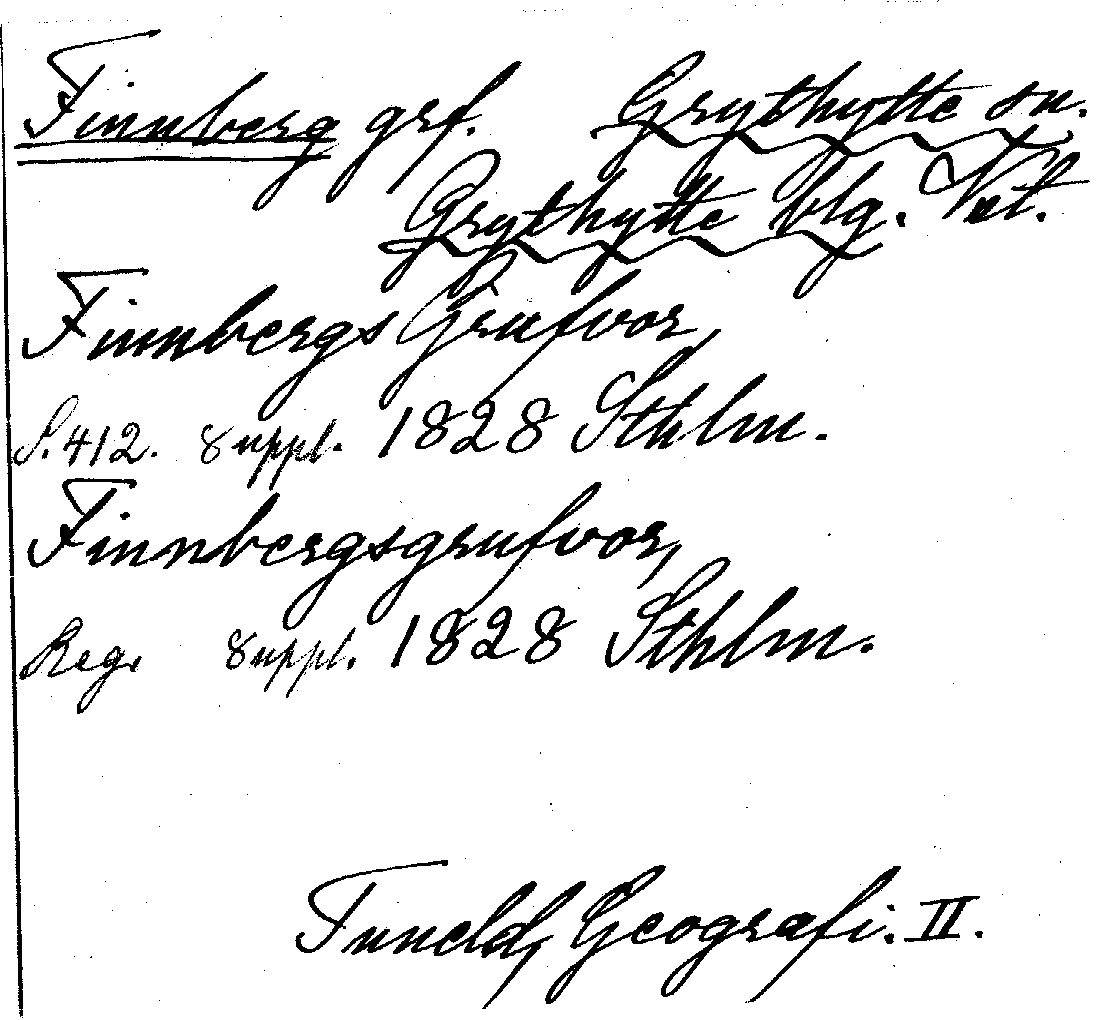 Finnberg grf. Grythytte sn.
Grythytte blg. Vstm.
Finnbergs Grufvor,
S. 412. Suppl. 1828 Sthlm.
Finnbergsgrufvor,
Reg. Suppl. 1828 Sthlm.
Tuneld, Geografi. II.